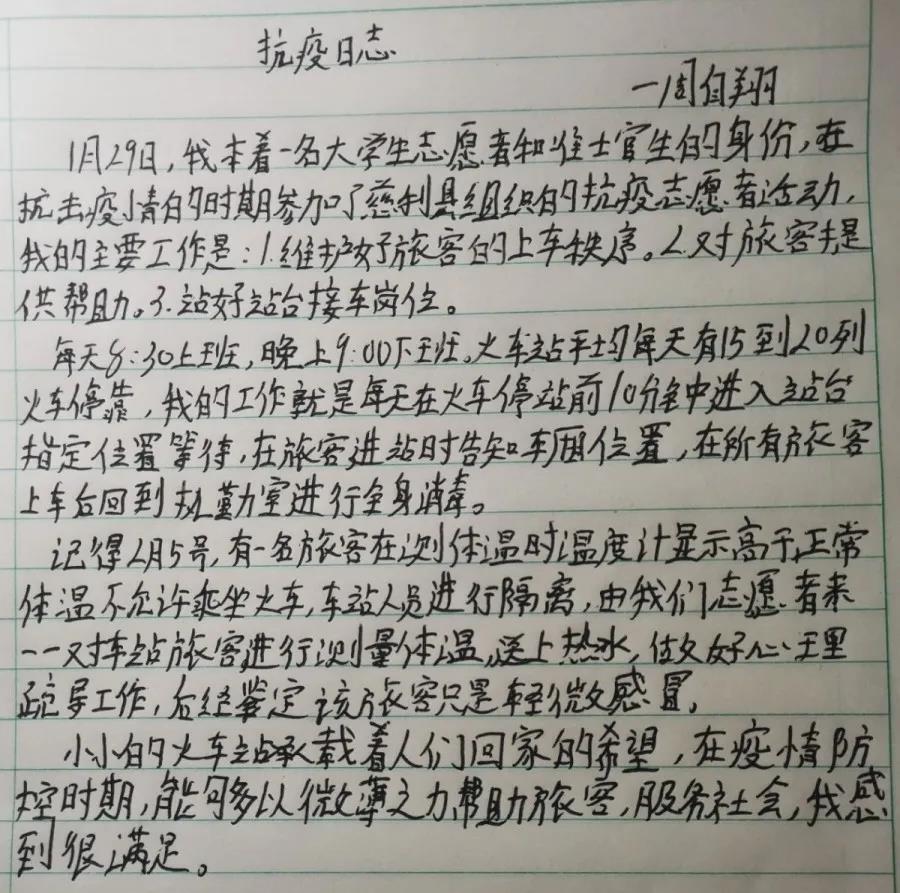 抗疫日志
一周自翔
1月29日,我本着一名大学生志愿者和准士官生的身份,在
抗击疫情的时期参加了慈利县组织的抗疫志愿者活动,
我的主要工作是:1.维护好旅客的上车秩序。2.对旅客提
供帮助。3.站好站台接车岗位。
每天8:30上班,晚上9:00下班。火车站平均每天有15到20列
火车停靠,我的工作就是每天在火车停站前10分钟中进入站台
指定位置等待,在旅客进站时告知车厢位置,在所有旅客
上车后回到执勤室进行全身消毒。
记得2月5号,有一名旅客在测体温时温度计显示高于正常
体温不允许乘坐火车,车站人员进行隔离,由我们志愿者来
一一对车站旅客进行测量体温,送上热水,做好心理
疏导工作,后经鉴定该旅客只是轻微感冒,
小小的火车站承载着人们回家的希望,在疫情防
控时期,能够多以微薄之力帮助旅客,服务社会,我感
到很满足。